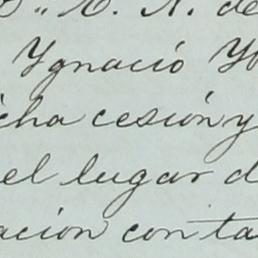 D." E. N. de
Ygnació Y
cha cesión y
el lugar d
ación con ta